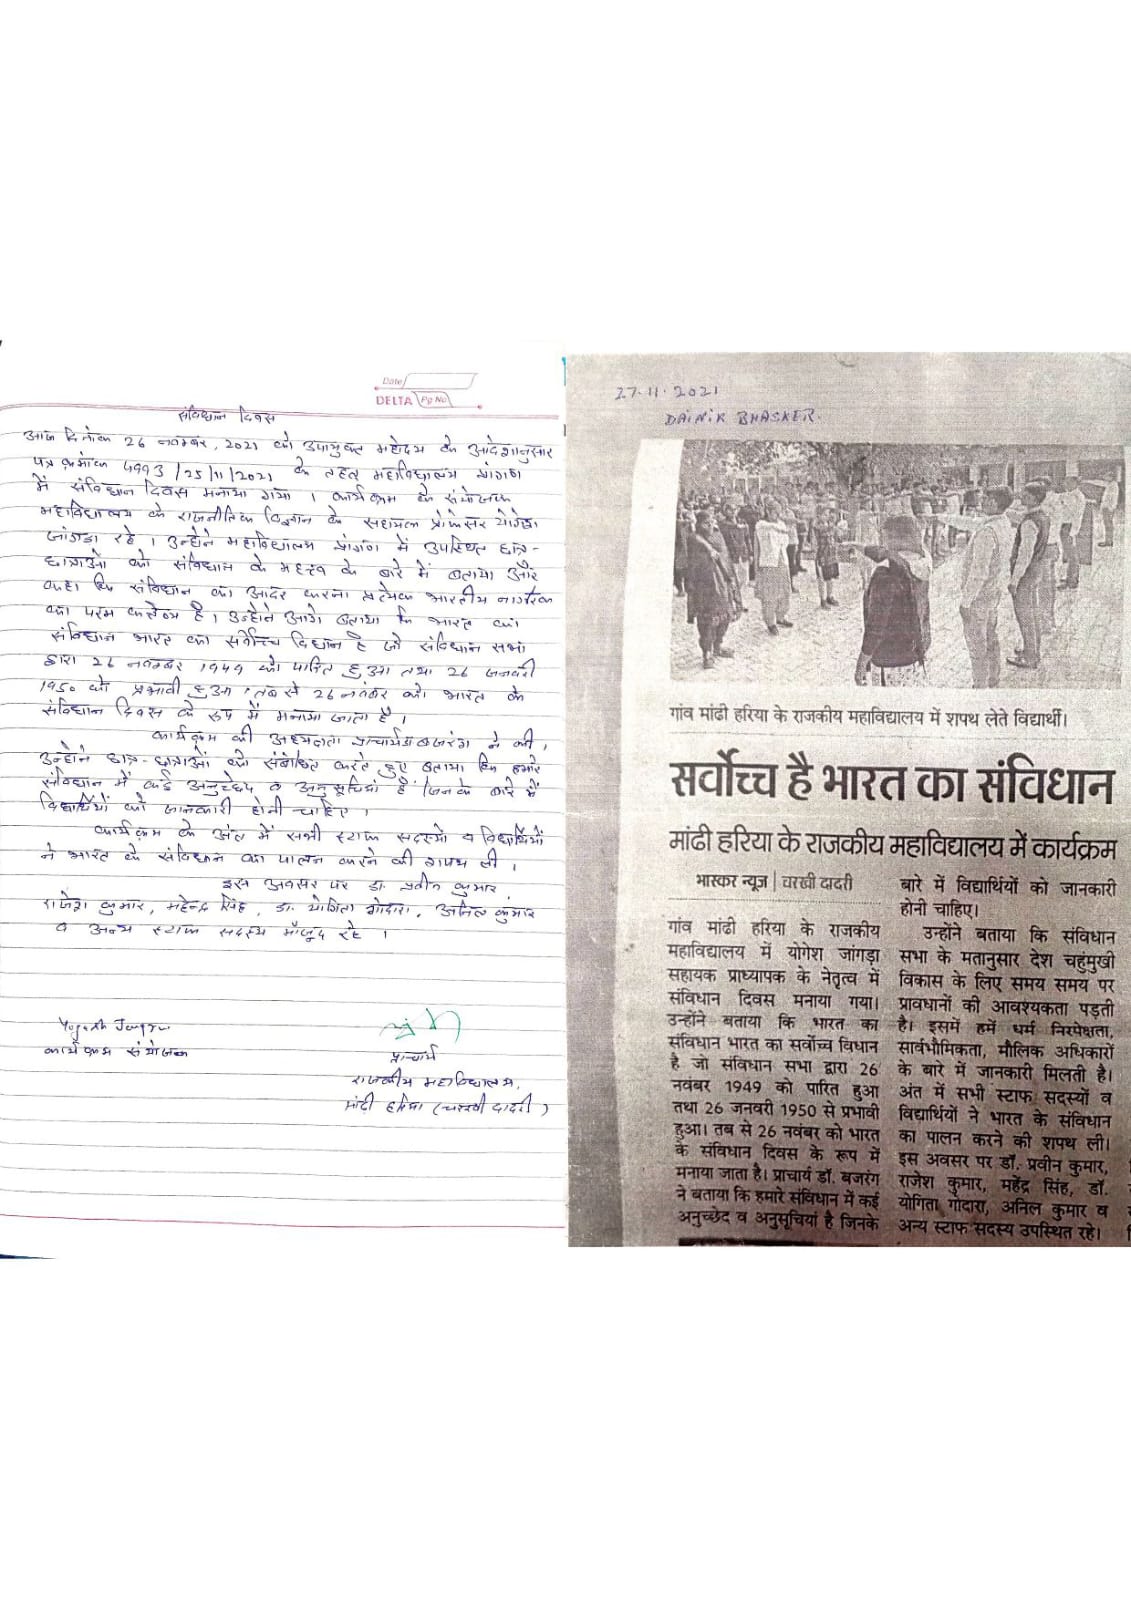 Date
DELTA Pg No
संविधान दिवस
आज दिनांक 26 नवम्बर, 2021 को उपायुक्त महोदय के आदेशानुसार
पत्र क्रमांक 4993/25/11/2021 के तहत महाविद्यालय प्रांगण
में संविधान दिवस मनाया गया । कार्यक्रम के संयोजक
महाविद्यालय के राजनीतिक विज्ञान के सहायक प्रोफेसर योगेश
जांगडा रहे । उन्होंने महाविद्यालय प्रांगण में उपस्थित छात्र-
छात्राओं को संविधान के महत्व के बारे में बताया और
कहा कि संविधान का आदर करना प्रत्येक भारतीय नागरिक
का परम कर्तव्य है । उन्होंने आगे बताया कि भारत का
संविधान भारत का सर्वोच्च विधान है जो संविधान सभा
द्वारा 26 नवम्बर 1949 को पारित हुआ तथा 26 जनवरी
1950 को प्रभावी हुआ । तब से 26 नवंबर को भारत के
संविधान दिवस के रूप में मनाया जाता है ।
कार्यक्रम की अध्यक्षता प्राचार्य डा बजरंग ने की ,
उन्होंने छात्र-छात्राओं को संबोधित करते हुए बताया कि हमारे
संविधान में कई अनुच्छेद व अनुसूचियां हैं जिनके बारे में
विद्यार्थियों को जानकारी होनी चाहिए ।
कार्यक्रम के अंत में सभी स्टाफ सदस्यो व विद्यार्थियों
ने भारत के संविधान का पालन करने की शपथ ली ।
इस अवसर पर डा. प्रवीन कुमार
राजेश कुमार, महेन्द्र सिंह, डा. योगिता गोदारा, अनिल कुमार
व अन्य स्टाफ सदस्य मौजूद रहे ।
Yogesh Jangra
कार्यक्रम संयोजक
प्राचार्य
राजकीय महाविद्यालय,
मांढी हरिया (चरखी दादरी)
27.11.2021
DAINIK BHASKER.
गांव मांढी हरिया के राजकीय महाविद्यालय में शपथ लेते विद्यार्थी।
सर्वोच्च है भारत का संविधान
मांढी हरिया के राजकीय महाविद्यालय में कार्यक्रम
भास्कर न्यूज | चरखी दादरी
गांव मांढी हरिया के राजकीय
महाविद्यालय में योगेश जांगड़ा
सहायक प्राध्यापक के नेतृत्व में
संविधान दिवस मनाया गया।
उन्होंने बताया कि भारत का
संविधान भारत का सर्वोच्च विधान
है जो संविधान सभा द्वारा 26
नवंबर 1949 को पारित हुआ
तथा 26 जनवरी 1950 से प्रभावी
हुआ। तब से 26 नवंबर को भारत
के संविधान दिवस के रूप में
मनाया जाता है। प्राचार्य डॉ. बजरंग
ने बताया कि हमारे संविधान में कई
अनुच्छेद व अनुसूचियां है जिनके
बारे में विद्यार्थियों को जानकारी
होनी चाहिए।
उन्होंने बताया कि संविधान
सभा के मतानुसार देश चहुंमुखी
विकास के लिए समय समय पर
प्रावधानों की आवश्यकता पड़ती
है। इसमें हमें धर्म निरपेक्षता,
सार्वभौमिकता, मौलिक अधिकारों
के बारे में जानकारी मिलती है।
अंत में सभी स्टाफ सदस्यों व
विद्यार्थियों ने भारत के संविधान
का पालन करने की शपथ ली।
इस अवसर पर डॉ. प्रवीन कुमार,
राजेश कुमार, महेंद्र सिंह, डॉ.
योगिता गोदारा, अनिल कुमार व
अन्य स्टाफ सदस्य उपस्थित रहे।